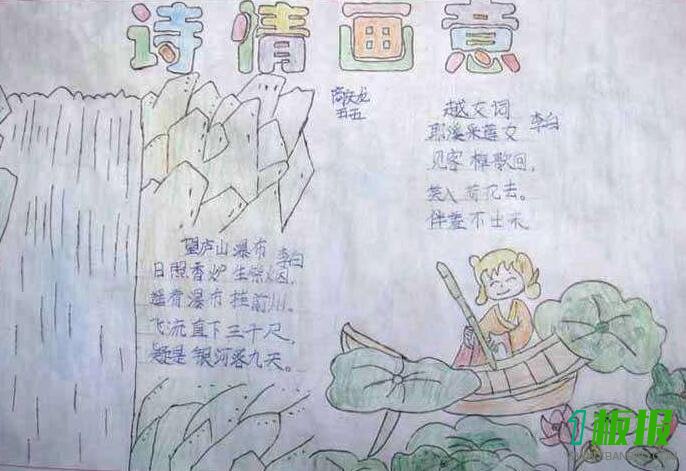 诗情画意
五五
越女词
李白
耶溪采莲女
见客棹歌回,
笑入荷花去。
佯羞不出来
望庐山瀑布
李白
日照香炉生紫烟,
遥看瀑布挂前川,
飞流直下三千尺,
疑是银河落九天。
1板报